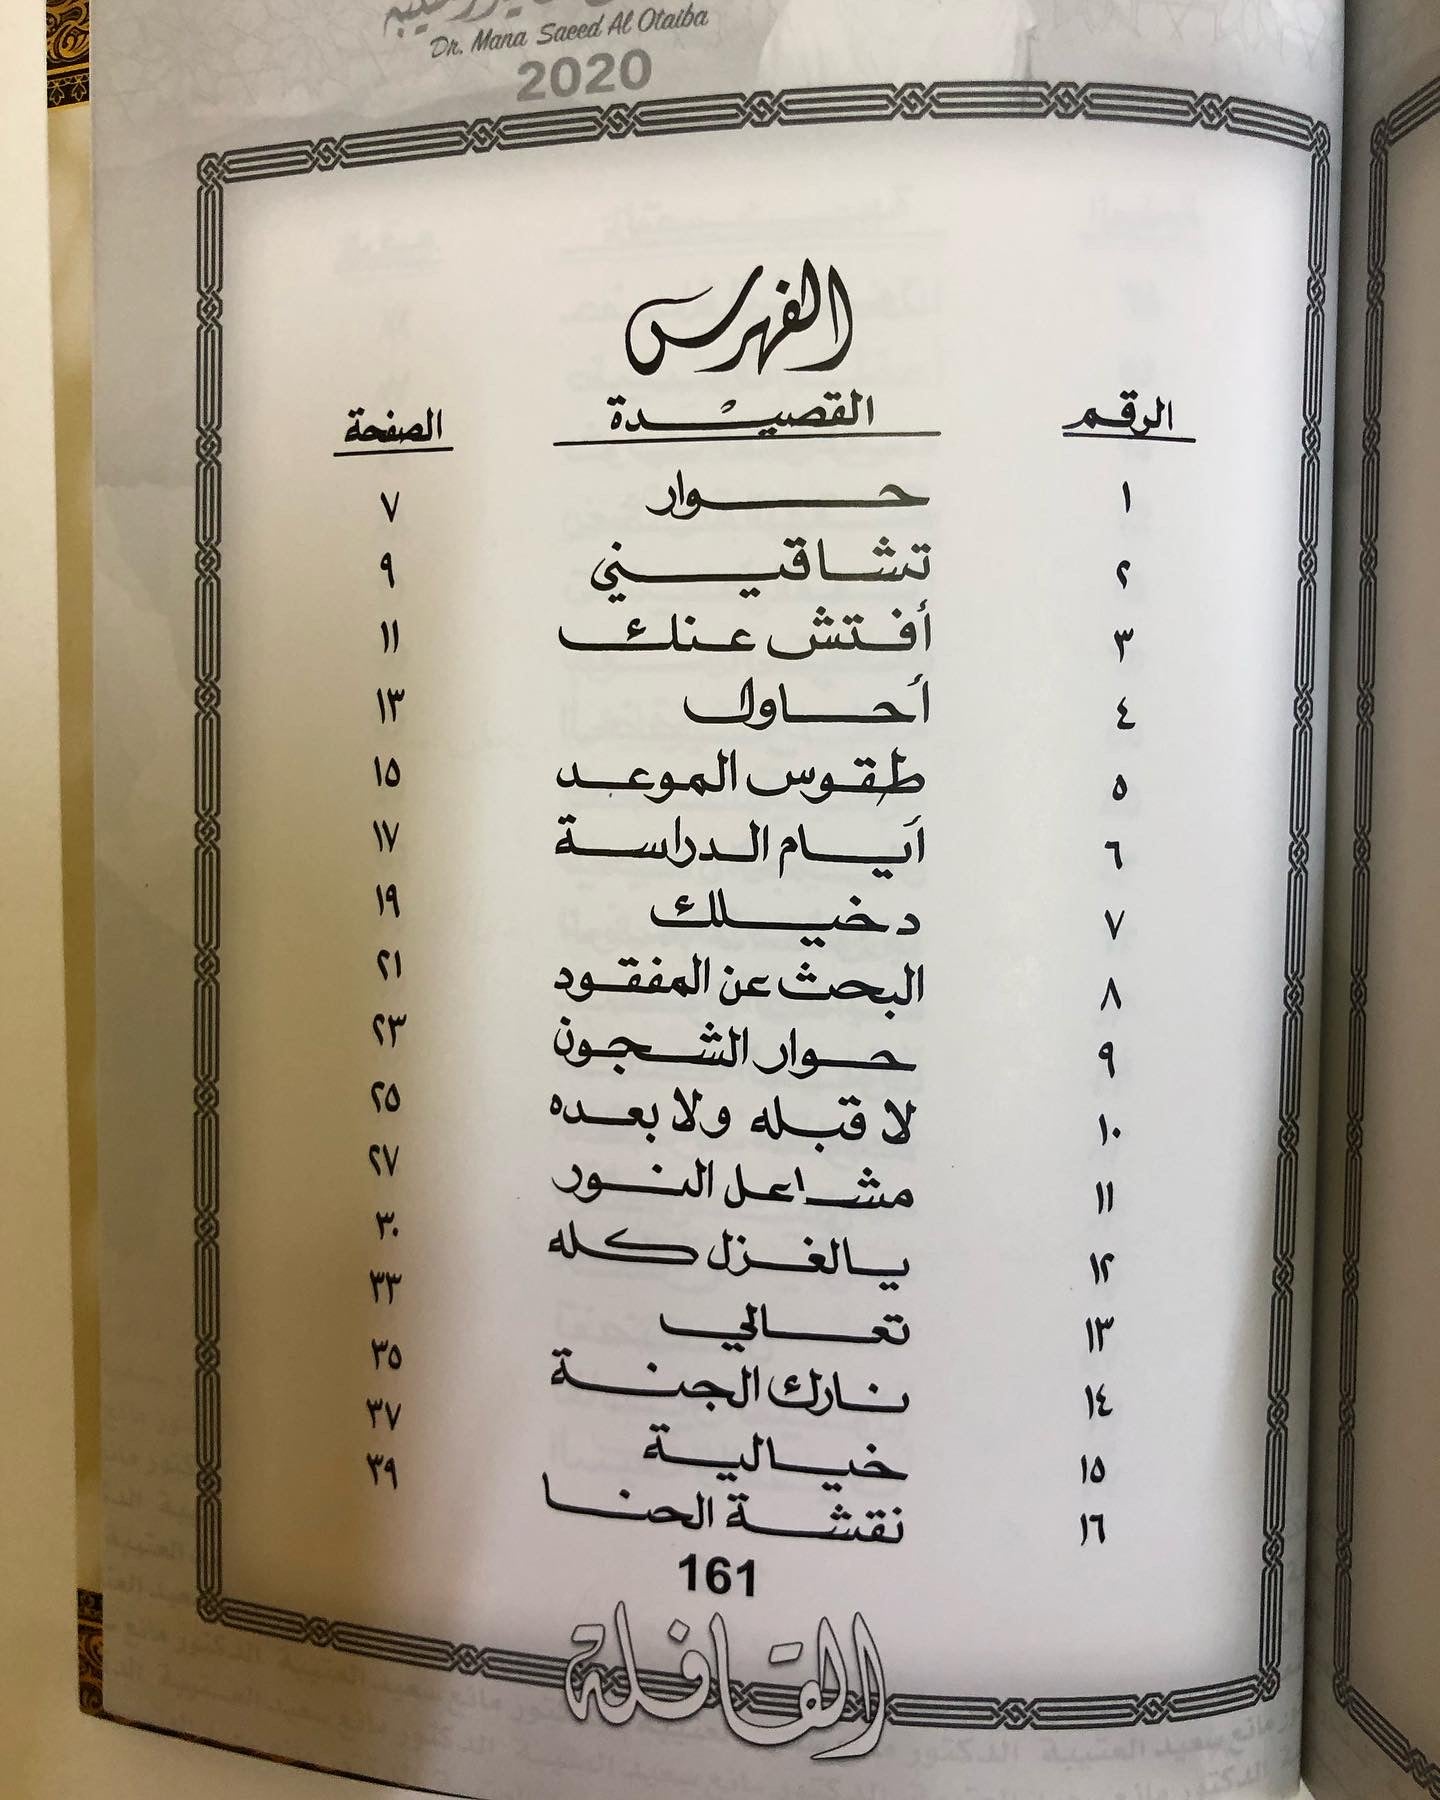 Dr. Mana Saeed Al Otaiba
2020
الفهرس
الرقم القصيدة الصفحة
١ حوار ٧
٢ تشاقيني ٩
٣ أفتش عنك ١١
٤ أحاول ١٣
٥ طقوس الموعد ١٥
٦ أيام الدراسة ١٧
٧ دخيلك ١٩
٨ البحث عن المفقود ٢١
٩ حوار الشجون ٢٣
١٠ لا قبله ولا بعده ٢٥
١١ مشاعل النور ٢٧
١٢ يالغزل كله ٣٠
١٣ تعالي ٣٣
١٤ نارك الجنة ٣٥
١٥ خيالية ٣٧
١٦ نقشة الحنا ٣٩
161
القافلة